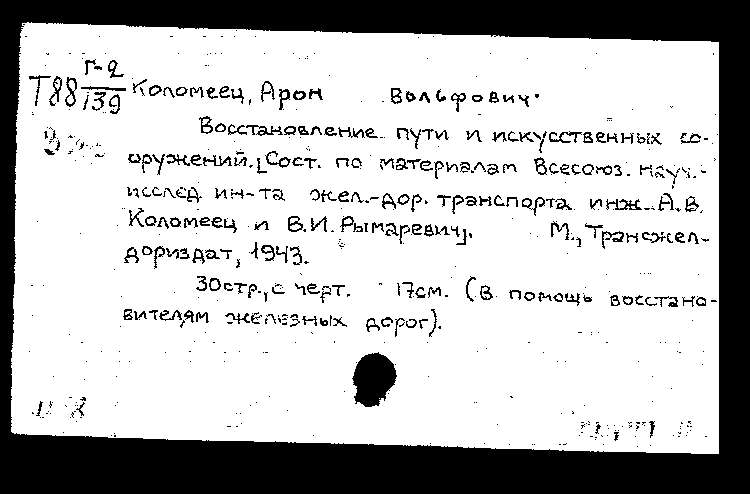 Г-2
Т88 139 Коломеец, Арон Вольфович.
Восстановление пути и искусственных со-
оружений. [Сост. по материалам Всесоюз. науч.-
исслед. ин-та жел.-дор. транспорта инж. А.В.
Коломеец и В.И. Рымаревич]. М., Трансжел-
дориздат, 1943.
30стр., с черт. 17см. (В помощь восстано-
вителям железных дорог).